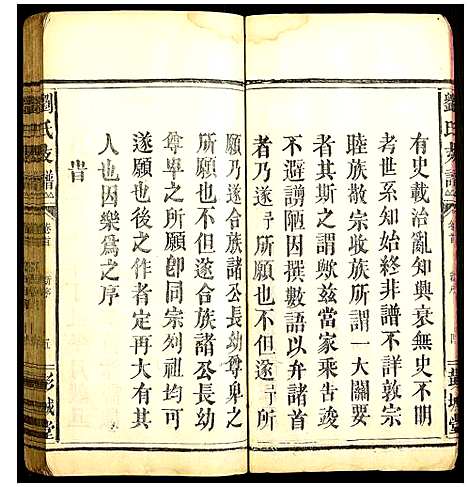 劉氏支譜
卷首
彭城堂
有史載治亂知興衰無史不明
考世系知始終非譜不詳敦宗
睦族散宗收族所謂一大關要
者其斯之謂歟兹當家乘告竣
不避謭陋因撰數語以弁首首
者乃遂予所願也不但遂予所
願乃遂合族諸公長幼尊卑之
所願也不但遂合族諸公長幼
尊卑之所願卽同宗列祖均可
遂願也後之作者定再大有其
人也因樂爲之序
旹
劉氏支譜
卷首
新序
五
彭城堂